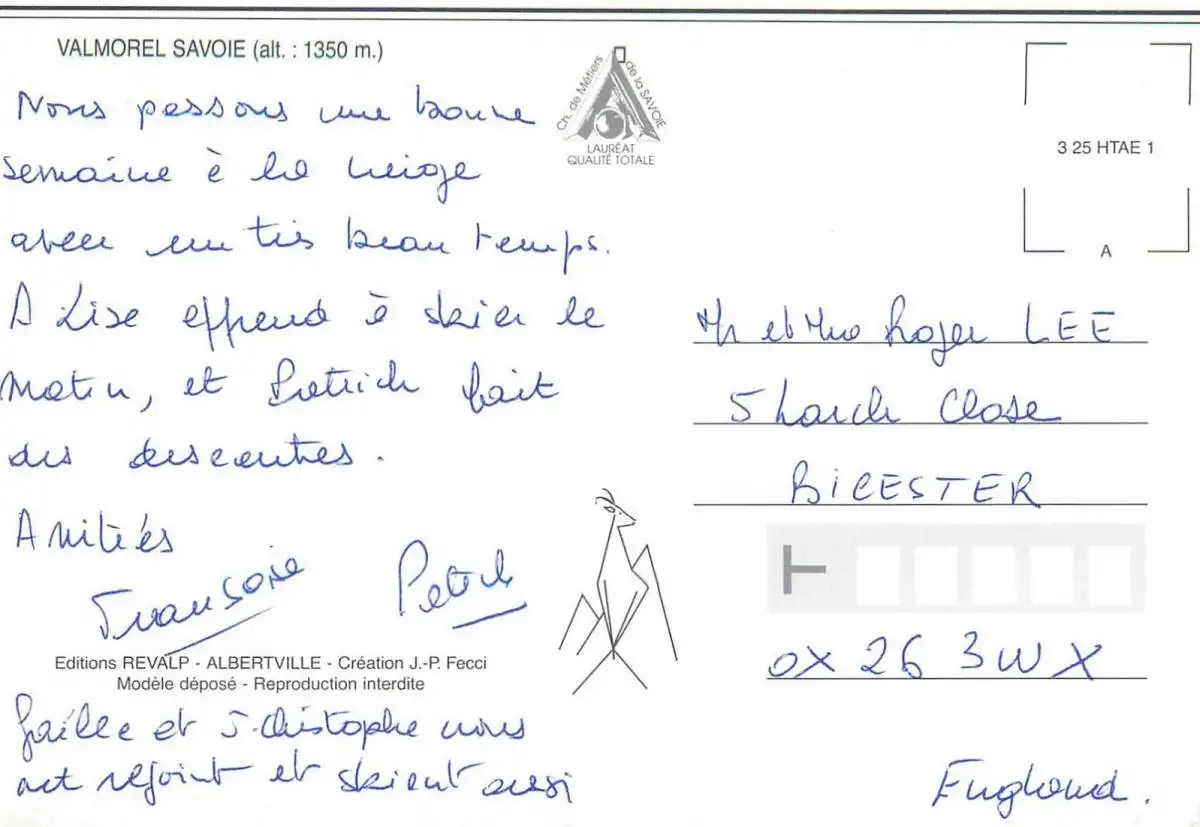 VALMOREL SAVOIE (alt. : 1350 m.)
Nous passons une bonne
semaine à la neige
avec un très beau temps.
A Lise apprend à skier le
matin, et Patrick fait
des descentes.
Amitiés
Françoise Patrick
Editions REVALP - ALBERTVILLE - Création J.-P. Fecci
Modèle déposé - Reproduction interdite
et J-Christophe nous
ont rejoint et skient aussi
Ch. de Métiers de la SAVOIE
LAURÉAT
QUALITÉ TOTALE
3 25 HTAE 1
A
Mr et Mme Roger LEE
5 Larch Close
BICESTER
OX 26 3WX
England.